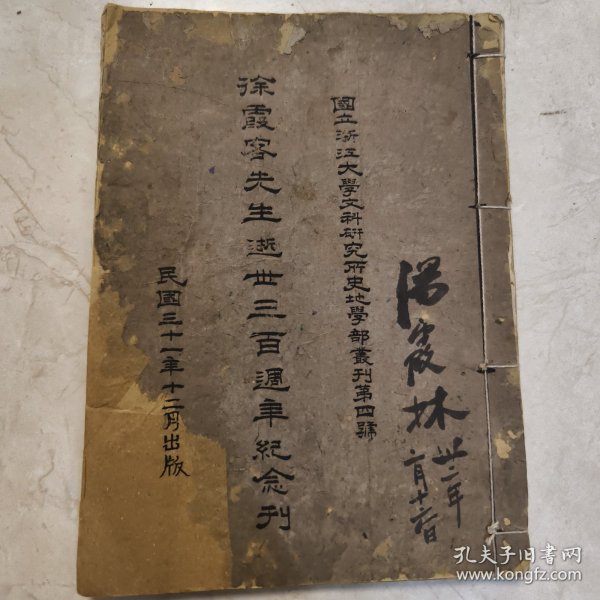 湯霞林
卅二年
國立浙江大學文科研究所史地學部叢刊第四號
徐霞客先生逝世三百週年紀念刊
民國三十一年十二月出版
孔夫子旧书网
www.kongfz.com